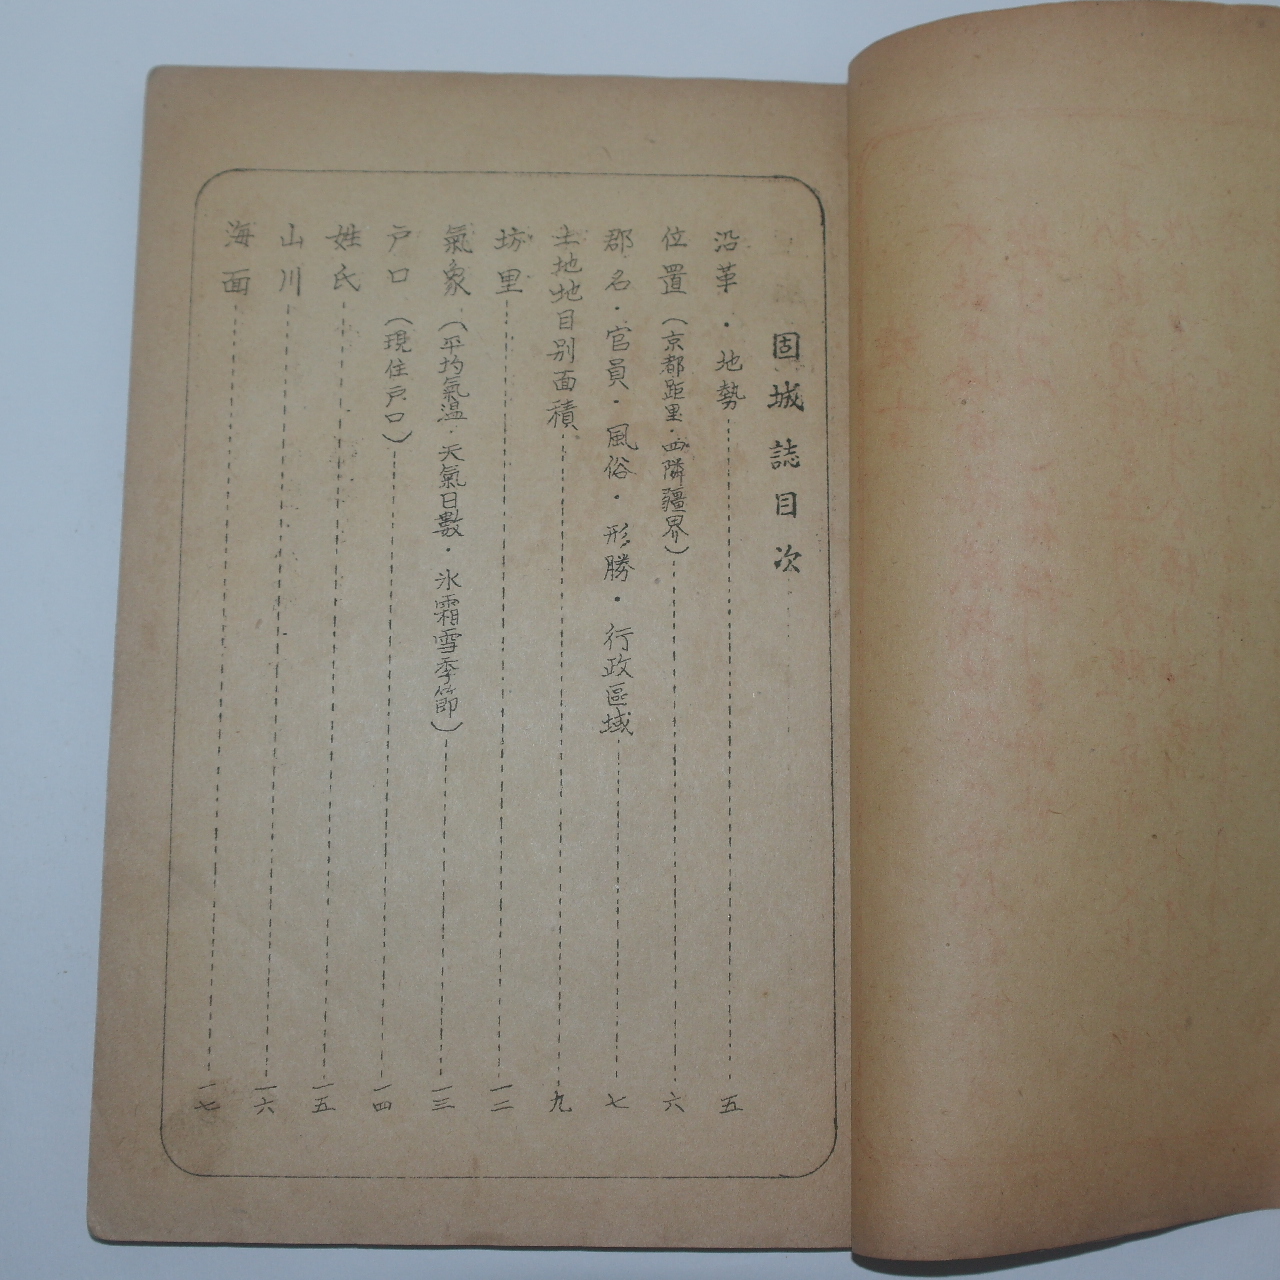 固城誌目次
沿革·地勢 五
位置(京都距里·四隣疆界) 六
郡名·官員·風俗·形勝·行政區域 七
土地地目別面積 九
坊里 一二
氣象(平均氣温·天氣日數·氷霜雪季節) 一三
戸口(現住戸口) 一四
姓氏 一五
山川 一六
海面 一七